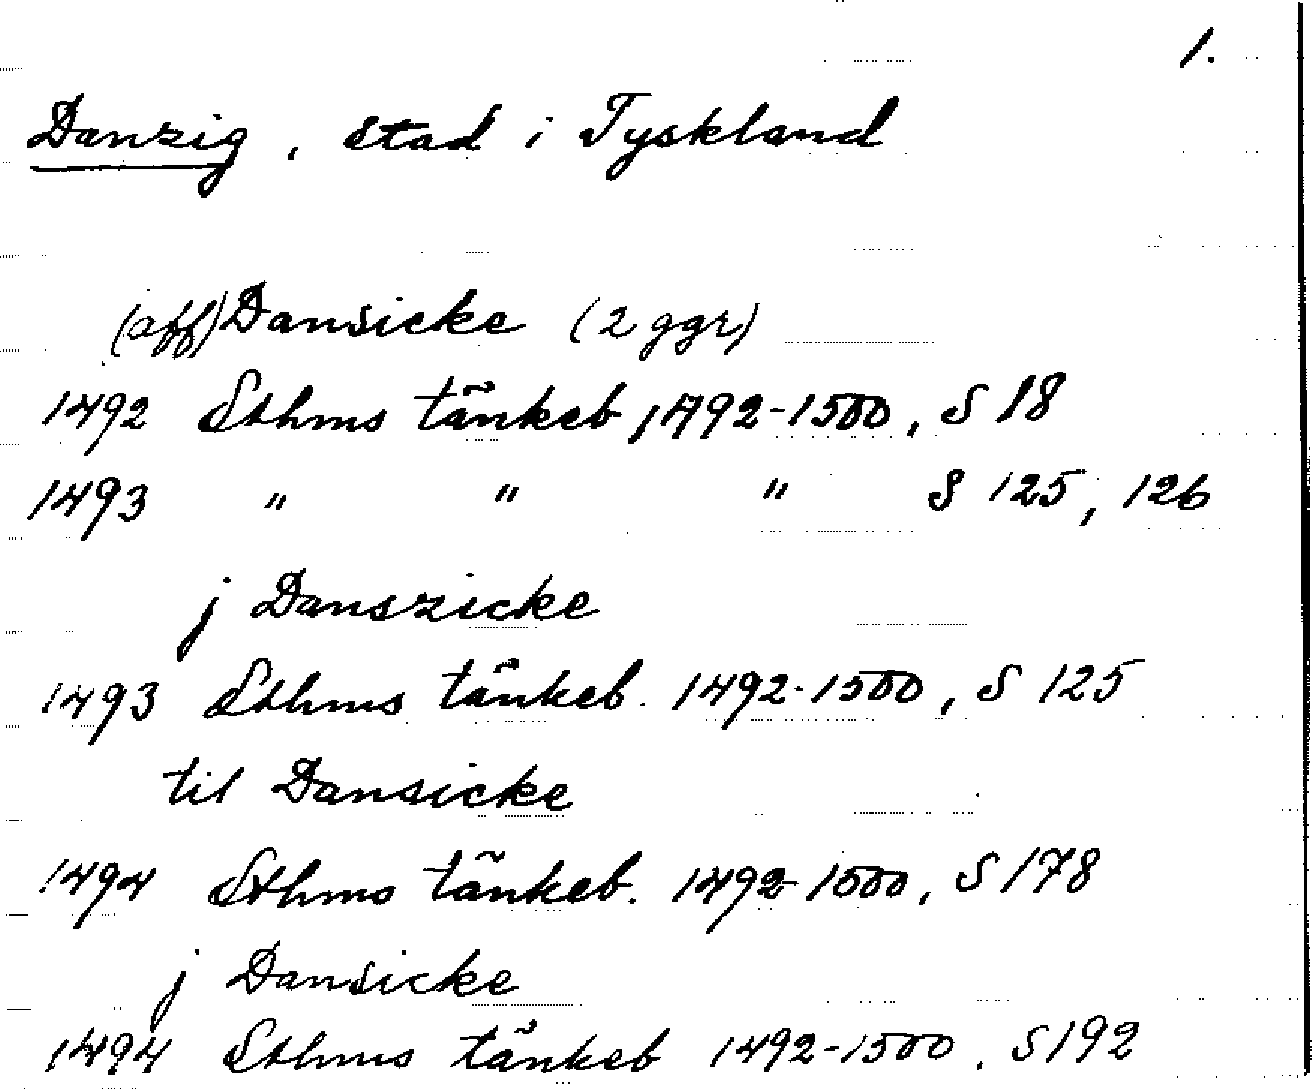 1.
Danzig, stad i Tyskland
(aff) Dansicke (2 ggr)
1492 Sthms tänkeb, 1492-1500, S 18
1493 " " " S 125, 126
j Danszicke
1493 Sthms tänkeb. 1492-1500, S 125
til Dansicke
1494 Sthms tänkeb. 1492-1500, S 178
j Dansicke
1494 Sthms tänkeb 1492-1500, S 192